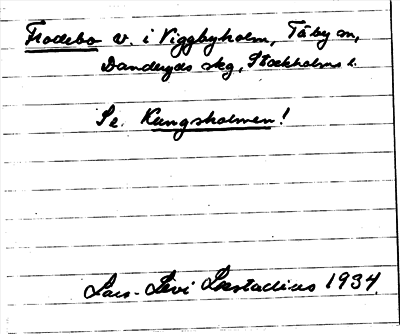 Frodebo v. i Viggbyholm, Täby sn,
Danderyds skg, Stockholms l.
Se. Kungsholmen!
Lars-Levi Læstadius 1934